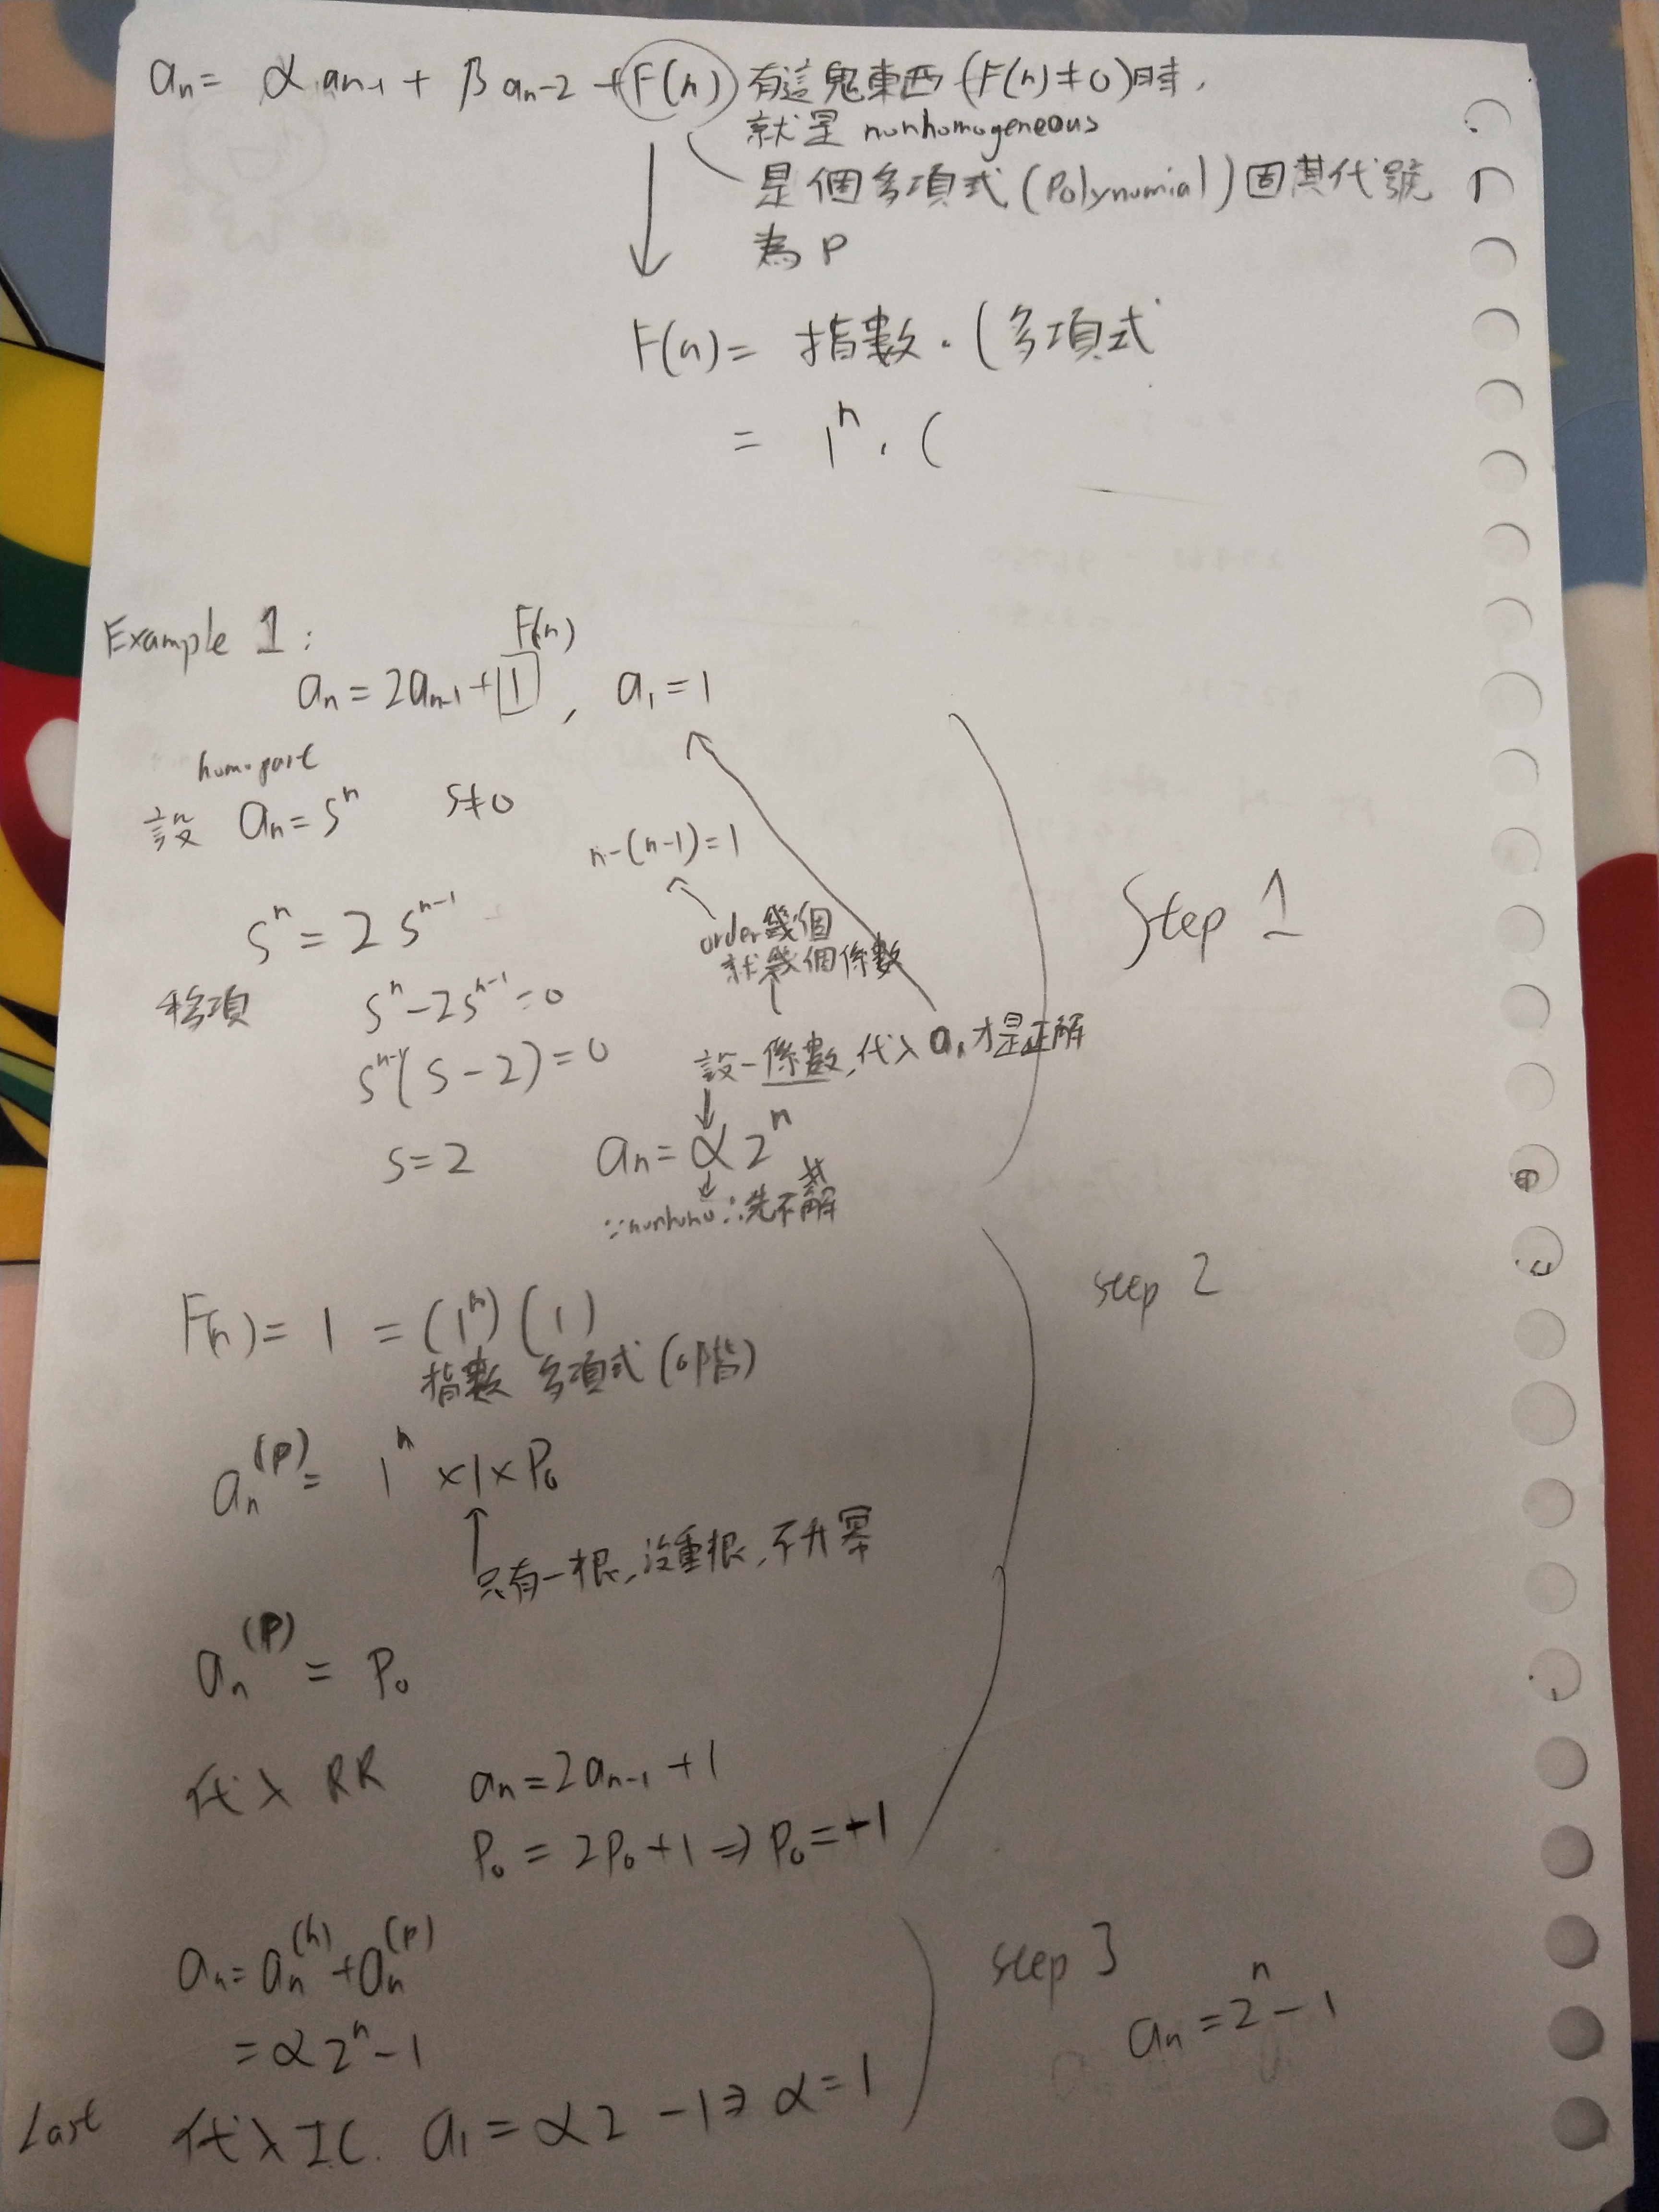 an = α an-1 + β an-2 + F(n) 有這鬼東西 (F(n) ≠ 0)時,
就是 nonhomogeneous
是個多項式 (Polynomial) 固其代號
為 P
F(n) = 指數 · (多項式
= 1ⁿ · (
Example 1 :
F(n)
an = 2an-1 + 1 , a₁ = 1
homo part
設 an = sⁿ s≠0
n-(n-1)=1
sⁿ = 2 sⁿ⁻¹
order幾個
就幾個係數
移項 sⁿ - 2sⁿ⁻¹ = 0
sⁿ⁻¹(s - 2) = 0
設一係數, 代入 a₁ 才是正解
s = 2 an = α 2ⁿ
∵nonhomo ∴先不求解
Step 1
F(n) = 1 = (1ⁿ) (1)
指數 多項式 (0階)
step 2
an⁽ᵖ⁾ = 1ⁿ × 1 × P₀
只有一根, 沒重根, 不升冪
an⁽ᵖ⁾ = P₀
代入 RR an = 2an-1 + 1
P₀ = 2P₀ + 1 ⇒ P₀ = +1
an = an⁽ʰ⁾ + an⁽ᵖ⁾
= α 2ⁿ - 1
step 3
an = 2ⁿ - 1
Last 代入 IC. a₁ = α2 - 1 ⇒ α = 1